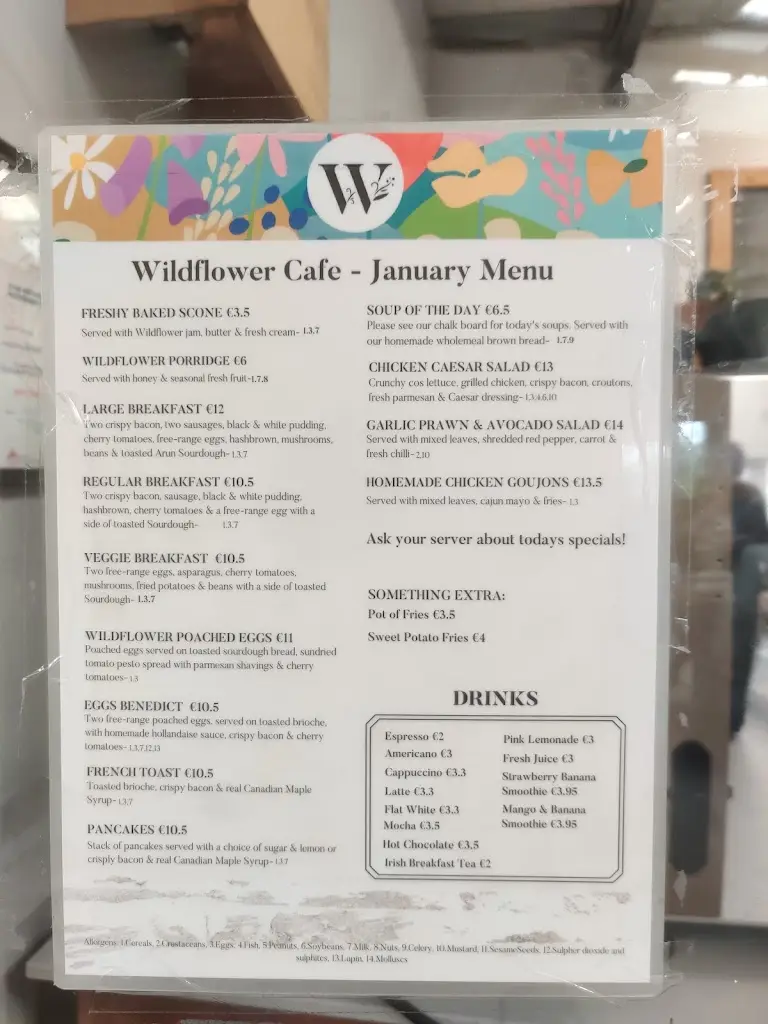 W
Wildflower Cafe - January Menu
FRESHY BAKED SCONE €3.5
Served with Wildflower jam, butter & fresh cream- 1.3.7
WILDFLOWER PORRIDGE €6
Served with honey & seasonal fresh fruit-1.7.8
LARGE BREAKFAST €12
Two crispy bacon, two sausages, black & white pudding,
cherry tomatoes, free-range eggs, hashbrown, mushrooms,
beans & toasted Arun Sourdough- 1.3.7
REGULAR BREAKFAST €10.5
Two crispy bacon, sausage, black & white pudding,
hashbrown, cherry tomatoes & a free-range egg with a
side of toasted Sourdough- 1.3.7
VEGGIE BREAKFAST €10.5
Two free-range eggs, asparagus, cherry tomatoes,
mushrooms, fried potatoes & beans with a side of toasted
Sourdough- 1.3.7
WILDFLOWER POACHED EGGS €11
Poached eggs served on toasted sourdough bread, sundried
tomato pesto spread with parmesan shavings & cherry
tomatoes- 1.3
EGGS BENEDICT €10.5
Two free-range poached eggs, served on toasted brioche,
with homemade hollandaise sauce, crispy bacon & cherry
tomatoes- 1.3.7.12.13
FRENCH TOAST €10.5
Toasted brioche, crispy bacon & real Canadian Maple
Syrup- 1.3.7
PANCAKES €10.5
Stack of pancakes served with a choice of sugar & lemon or
crisply bacon & real Canadian Maple Syrup- 1.3.7
SOUP OF THE DAY €6.5
Please see our chalk board for today's soups. Served with
our homemade wholemeal brown bread- 1.7.9
CHICKEN CAESAR SALAD €13
Crunchy cos lettuce, grilled chicken, crispy bacon, croutons,
fresh parmesan & Caesar dressing- 1.3.4.6.10
GARLIC PRAWN & AVOCADO SALAD €14
Served with mixed leaves, shredded red pepper, carrot &
fresh chilli- 2.10
HOMEMADE CHICKEN GOUJONS €13.5
Served with mixed leaves, cajun mayo & fries- 1.3
Ask your server about todays specials!
SOMETHING EXTRA:
Pot of Fries €3.5
Sweet Potato Fries €4
DRINKS
Espresso €2
Americano €3
Cappuccino €3.3
Latte €3.3
Flat White €3.3
Mocha €3.5
Hot Chocolate €3.5
Irish Breakfast Tea €2
Pink Lemonade €3
Fresh Juice €3
Strawberry Banana
Smoothie €3.95
Mango & Banana
Smoothie €3.95
Allergens: 1.Cereals, 2.Crustaceans, 3.Eggs, 4.Fish, 5.Peanuts, 6.Soybeans, 7.Milk, 8.Nuts, 9.Celery, 10.Mustard, 11.SesameSeeds, 12.Sulpher dioxide and
sulphites, 13.Lupin, 14.Molluscs